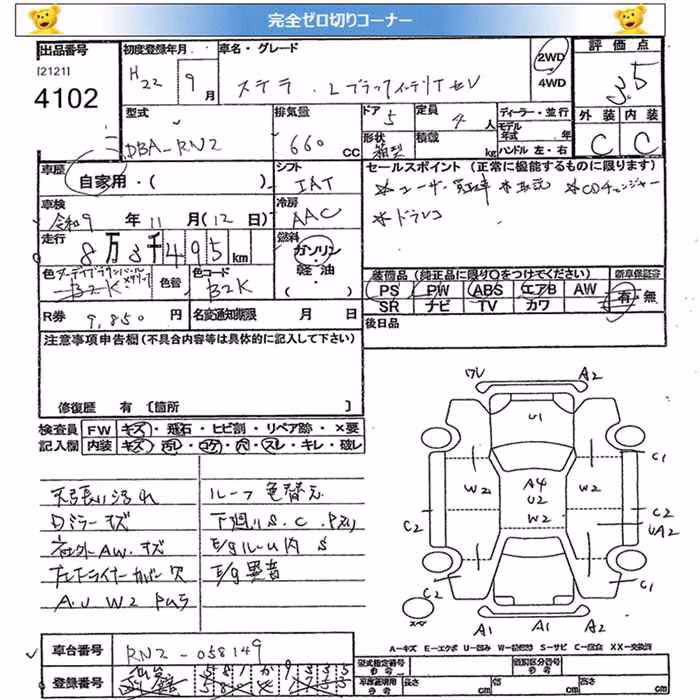 完全ゼロ切りコーナー
出品番号
[2121]
4102
初度登録年月
H22 9月
車名・グレード
ステラ . LブラックインテリアセレV
2WD
4WD
評価点
3.5
外装 内装
C C
型式
DBA-RN2
排気量
660 cc
ドア 5
定員 4 人
形状 箱型
積載 kg
ディーラー・並行
モデル年式 年
ハンドル 左・右
車歴
自家用・( )
シフト
IAT
車検
令和9 年 11 月 (12 日)
冷房
AAC
走行
8万3千495km
燃料
ガソリン・
軽油・
( )
セールスポイント (正常に機能するものに限ります)
*ユーザー買取車 *取説 *CDチェンジャー
*ドラレコ
色
B2K
色替
色コード
B2K
装備品(純正品に限り○をつけてください)
PS PW ABS エアB AW
SR ナビ TV カワ
新車保証書
有・無
R券 9,850 円
名変通知期限 月 日
後日品
注意事項申告欄(不具合内容等は具体的に記入して下さい)
修復歴 有 〔箇所 〕
検査員 FW キズ・飛石・ヒビ割・リペア跡・×要
記入欄 内装 キズ・汚レ・コゲ・穴・スレ・キレ・破レ
天張り汚れ
Dミラーキズ
社外AW.キズ
左Fライナーカバー穴
A.U W2 Pあり
ルーフ色替え
下廻りS.C.Pあり
E/gルーム内S
E/g異音
ワレ A2
U1
C1
W2
A4
U2
W2
W2
C2
C2
UA2
C2
C1
A1 A1 A2
スペア
A=キズ E=エクボ U=凹み W=補修跡 S=サビ C=腐食 XX=交換済
車台番号
RN2-058149
登録番号
型式指定番号
類別区分番号
車庫証明用 参考
長さ cm
幅 cm
高さ cm